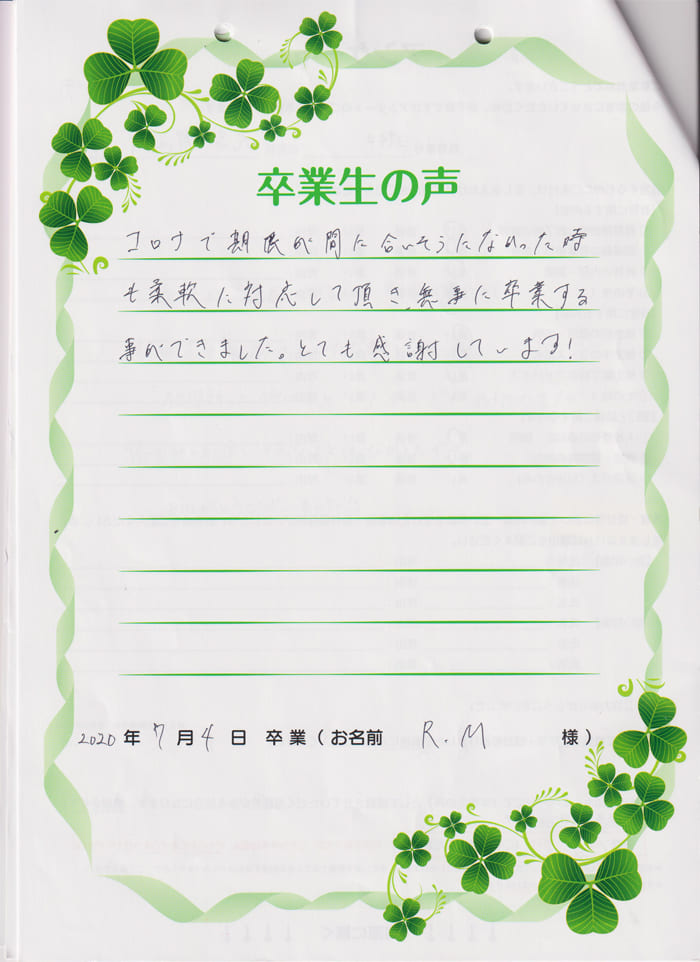 卒業生の声
コロナで期限が間に合いそうになかった時
も柔軟に対応して頂き、無事に卒業する
事ができました。とても感謝しています！
2020年7月4日 卒業（お名前 R.M 様）